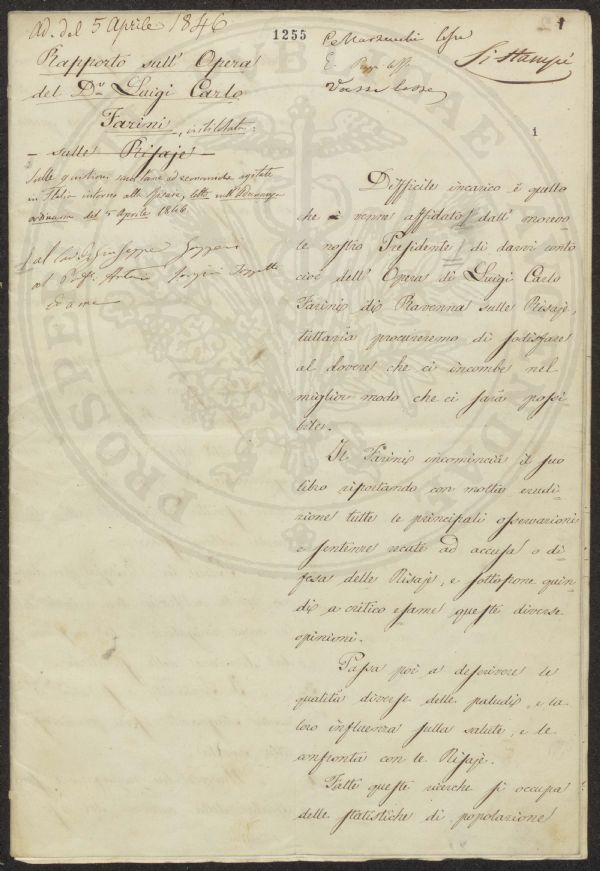 Ad. del 5 Aprile 1846
1255
1
Rapporto sull' Opera
del Dr Luigi Carlo
Farini, intitolata:
- sulle Risaje -
Sulle quistioni sanitarie ed economiche agitate
in Italia intorno alle Risaje, letto nell' Adunanza
ordinaria del 5 Aprile 1846
al Giuseppe
al Prof. Antonio
Si stampi
1
Difficile incarico è quello
che venne affidato dall' onorevo
le nostro Presidente di darvi conto
cioè dell' Opera di Luigi Carlo
Farini di Ravenna sulle Risaje,
tuttavia procureremo di sodisfare
al dovere che ci incombe nel
miglior modo che ci sarà possi
bile.
Il Farini incomincia il suo
libro riportando con molta erudi-
zione tutte le principali osservazioni
e sentenze recate ad accusa o di-
fesa delle Risaje, e sottopone quin-
di a critico esame queste diverse
opinioni.
Passa poi a descrivere le
qualità diverse delle paludi, e la
loro influenza sulla salute, e le
confronta con le Risaje.
Fatte queste ricerche si occupa
delle statistiche di popolazione
PROSPERITATI PUBLICAE